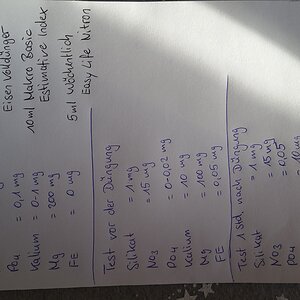 PO4 = 0,1 mg Eisen Volldünger
Kalium = 0-1 mg 10ml Makro Basic
Mg = 200 mg Estimative Index
FE = 0 mg 5ml Wöchentlich
Easy Life Nitron
Test vor der Düngung
Silikat = 1 mg
NO3 = 15 mg
PO4 = 0-0,02 mg
Kalium = 10 mg
Mg = 100 mg
FE = 0,05 mg
Test 1 std nach Düngung
Silikat = 1 mg
NO3 = 15 mg
PO4 = 0,05
= 10 mg